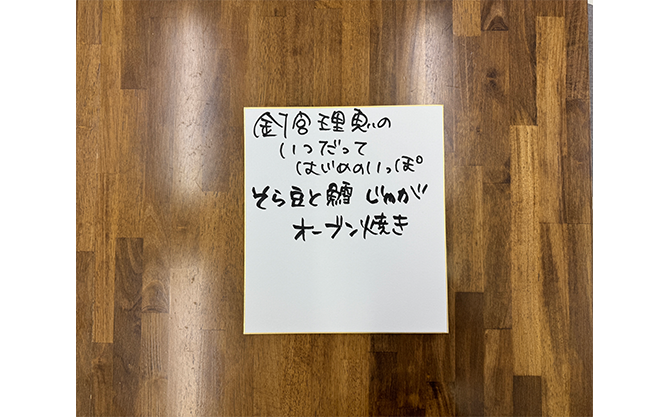 釘宮理恵の
いつだって
はじめのいっぽ
そら豆と鱈 じゃが
オーブン焼き